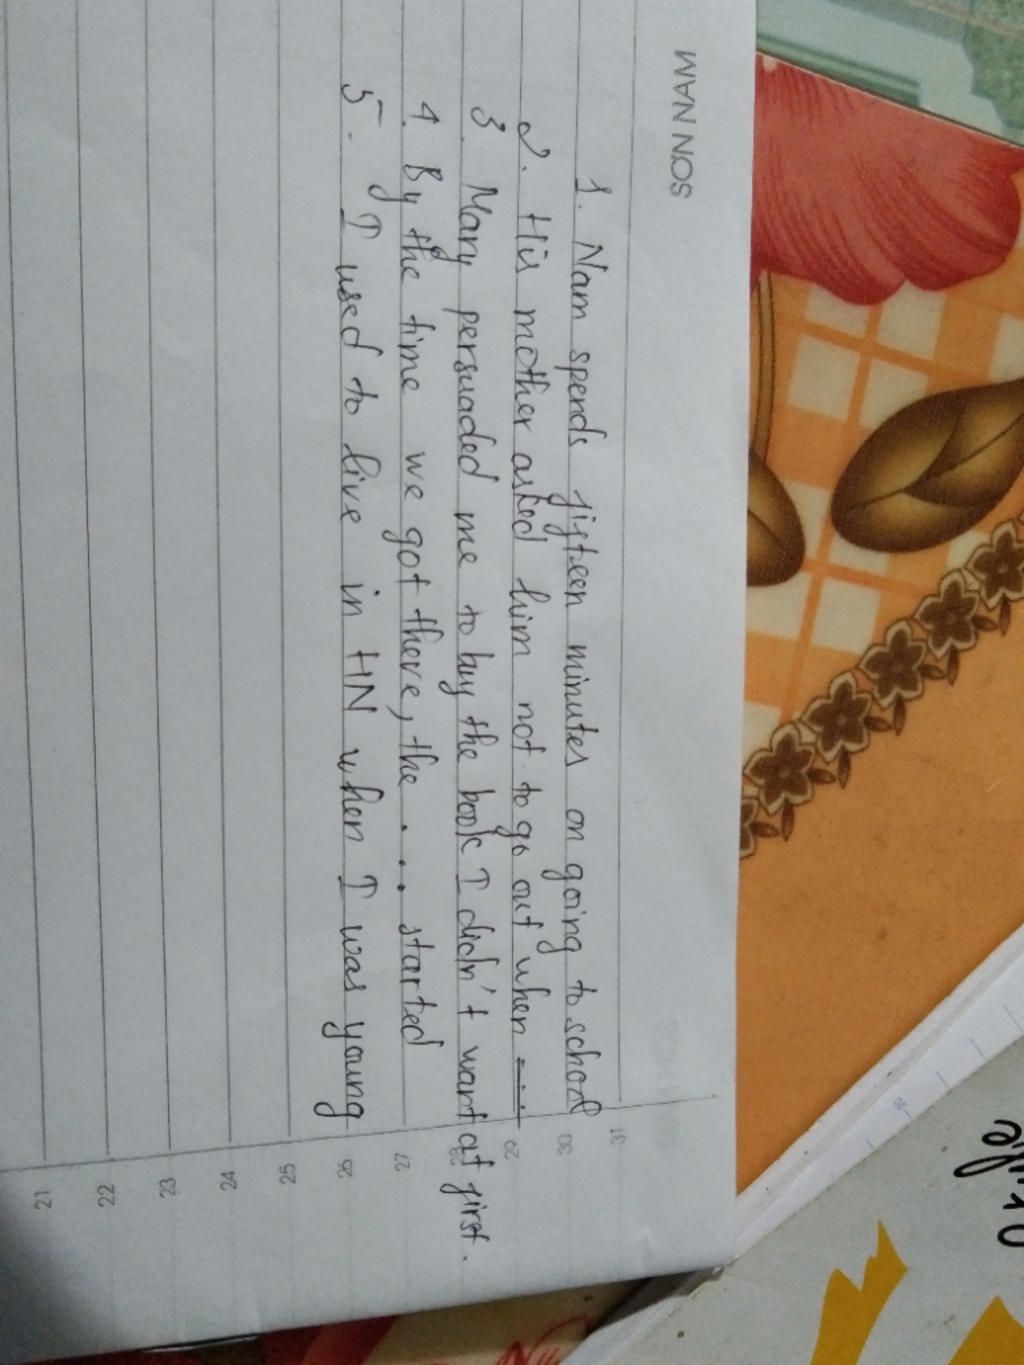 SON NAM
1. Nam spends fifteen minutes on going to school
2. His mother asked him not to go out when
3. Mary persuaded me to buy the book I didn't want at first.
4. By the time we got there, the ... started
5. I used to live in HN when I was young
31
30
29
28
27
26
25
24
23
22
21